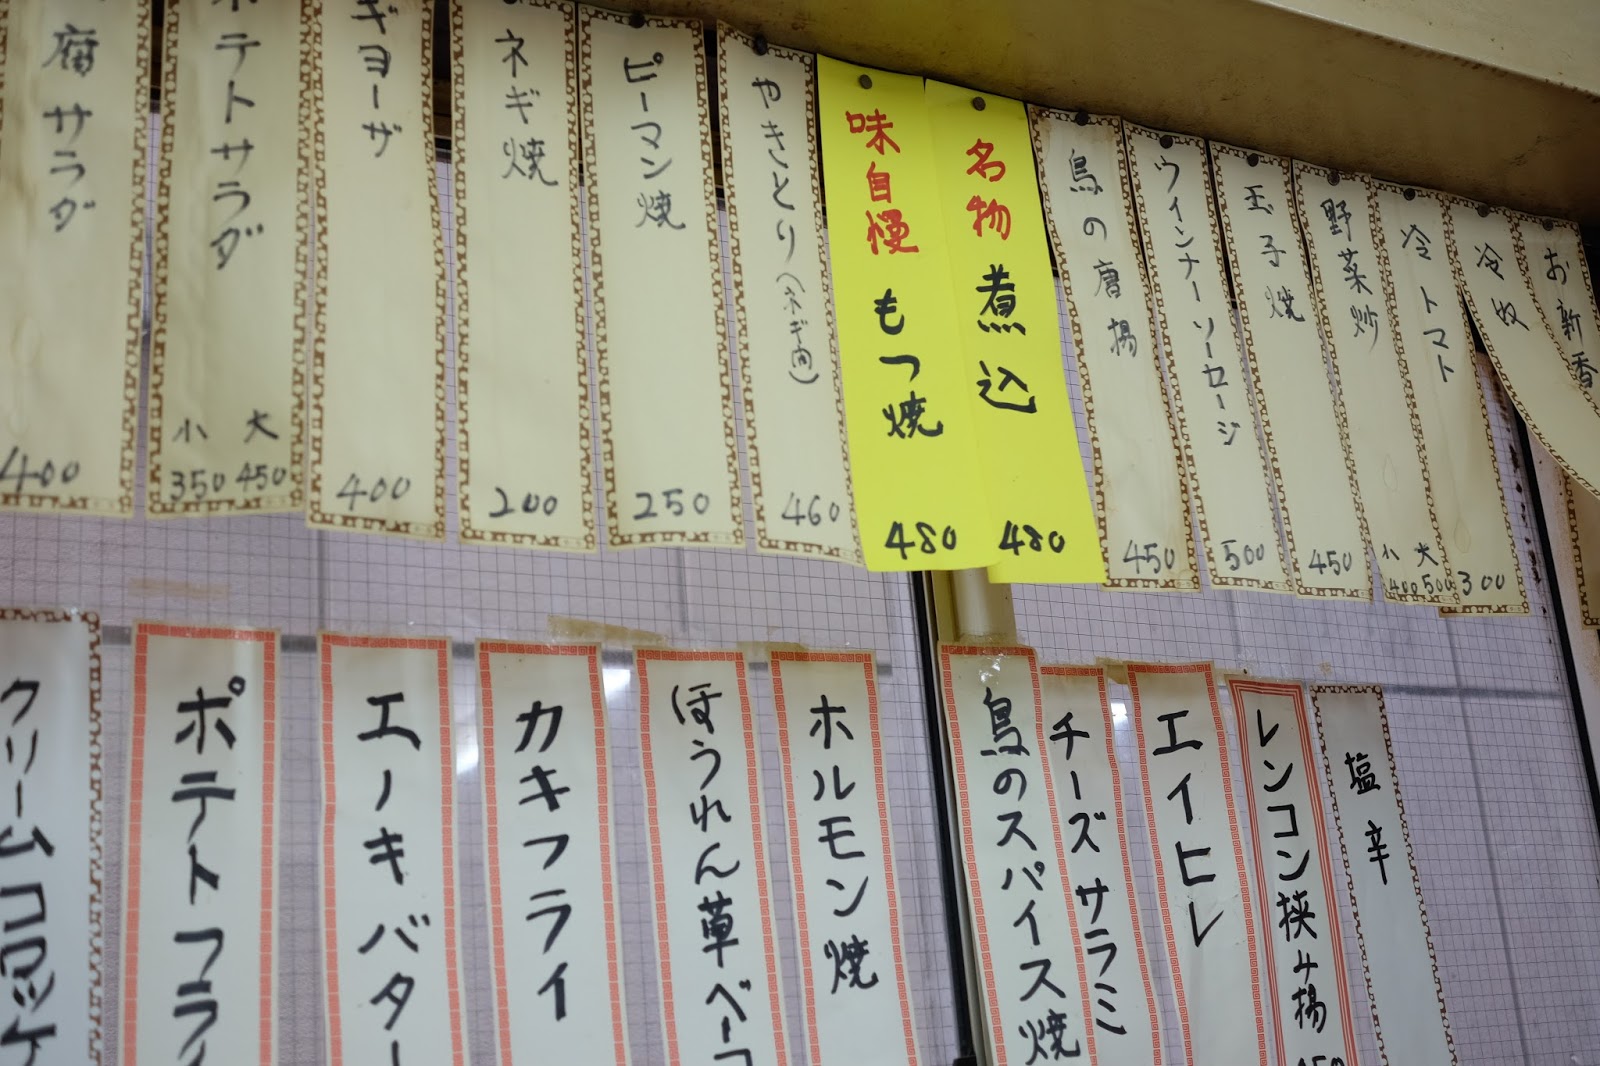 腐サラダ
400
ポテトサラダ
小 大
350 450
ギョーザ
400
ネギ焼
200
ピーマン焼
250
やきとり(ネギ肉)
460
味自慢 もつ焼
480
名物 煮込
480
鳥の唐揚
450
ウインナーソーセージ
500
玉子焼
450
野菜炒
冷トマト
小 大
400 500
冷奴
300
お新香
クリームコロッケ
ポテトフライ
エノキバター
カキフライ
ほうれん草ベーコ
ホルモン焼
鳥のスパイス焼
チーズサラミ
エイヒレ
レンコン挟み揚
塩辛